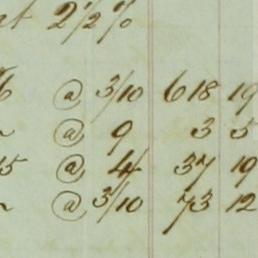 at 2 1/2 %
6 @ 3/10 618 19
@ 9 3 5
15 @ 4/ 37 19
@ 3/10 73 12